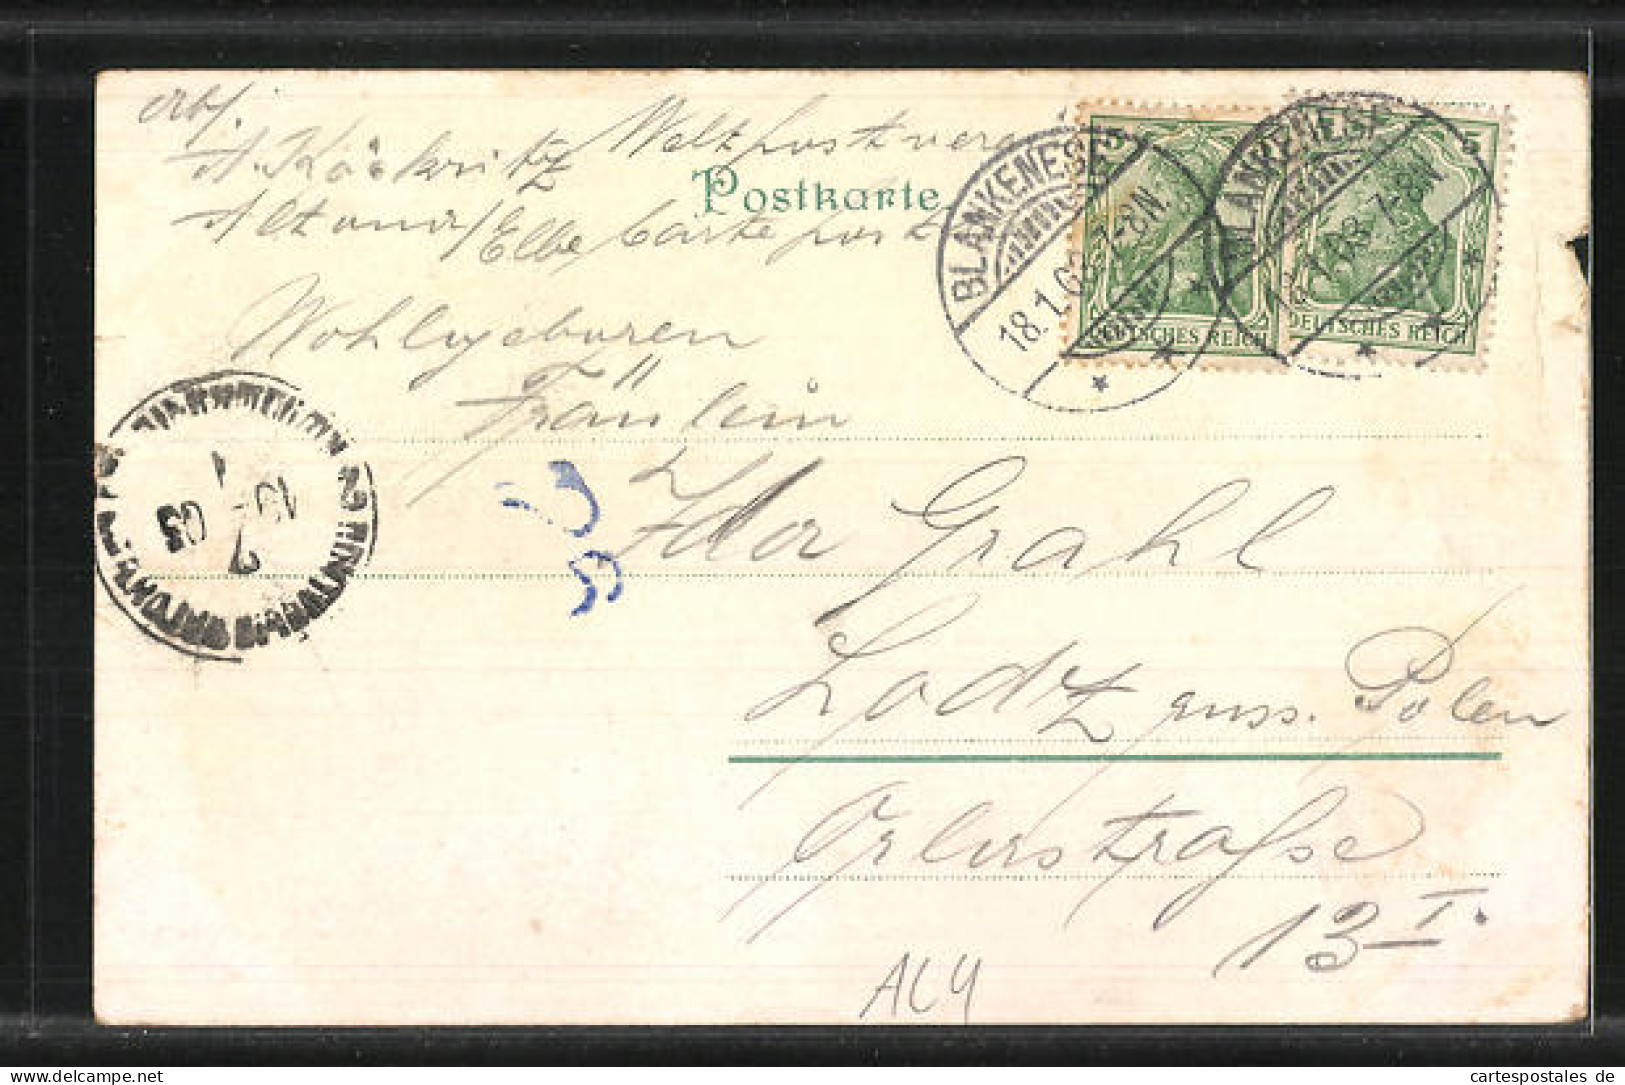 Abs.
A. Köckritz Weltpostverein
Postkarte
Altona/Elbe Carte postale
BLANKENESE
18.1.03 7-8N.
BLANKENESE
18.1.03 7-8N
5
5
DEUTSCHES REICH
DEUTSCHES REICH
Wohlgeboren
Fräulein
Ida Grahl
Lodz russ. Polen
13 I.
1
19 03
7
ACY
delcampe.net
cartespostales de